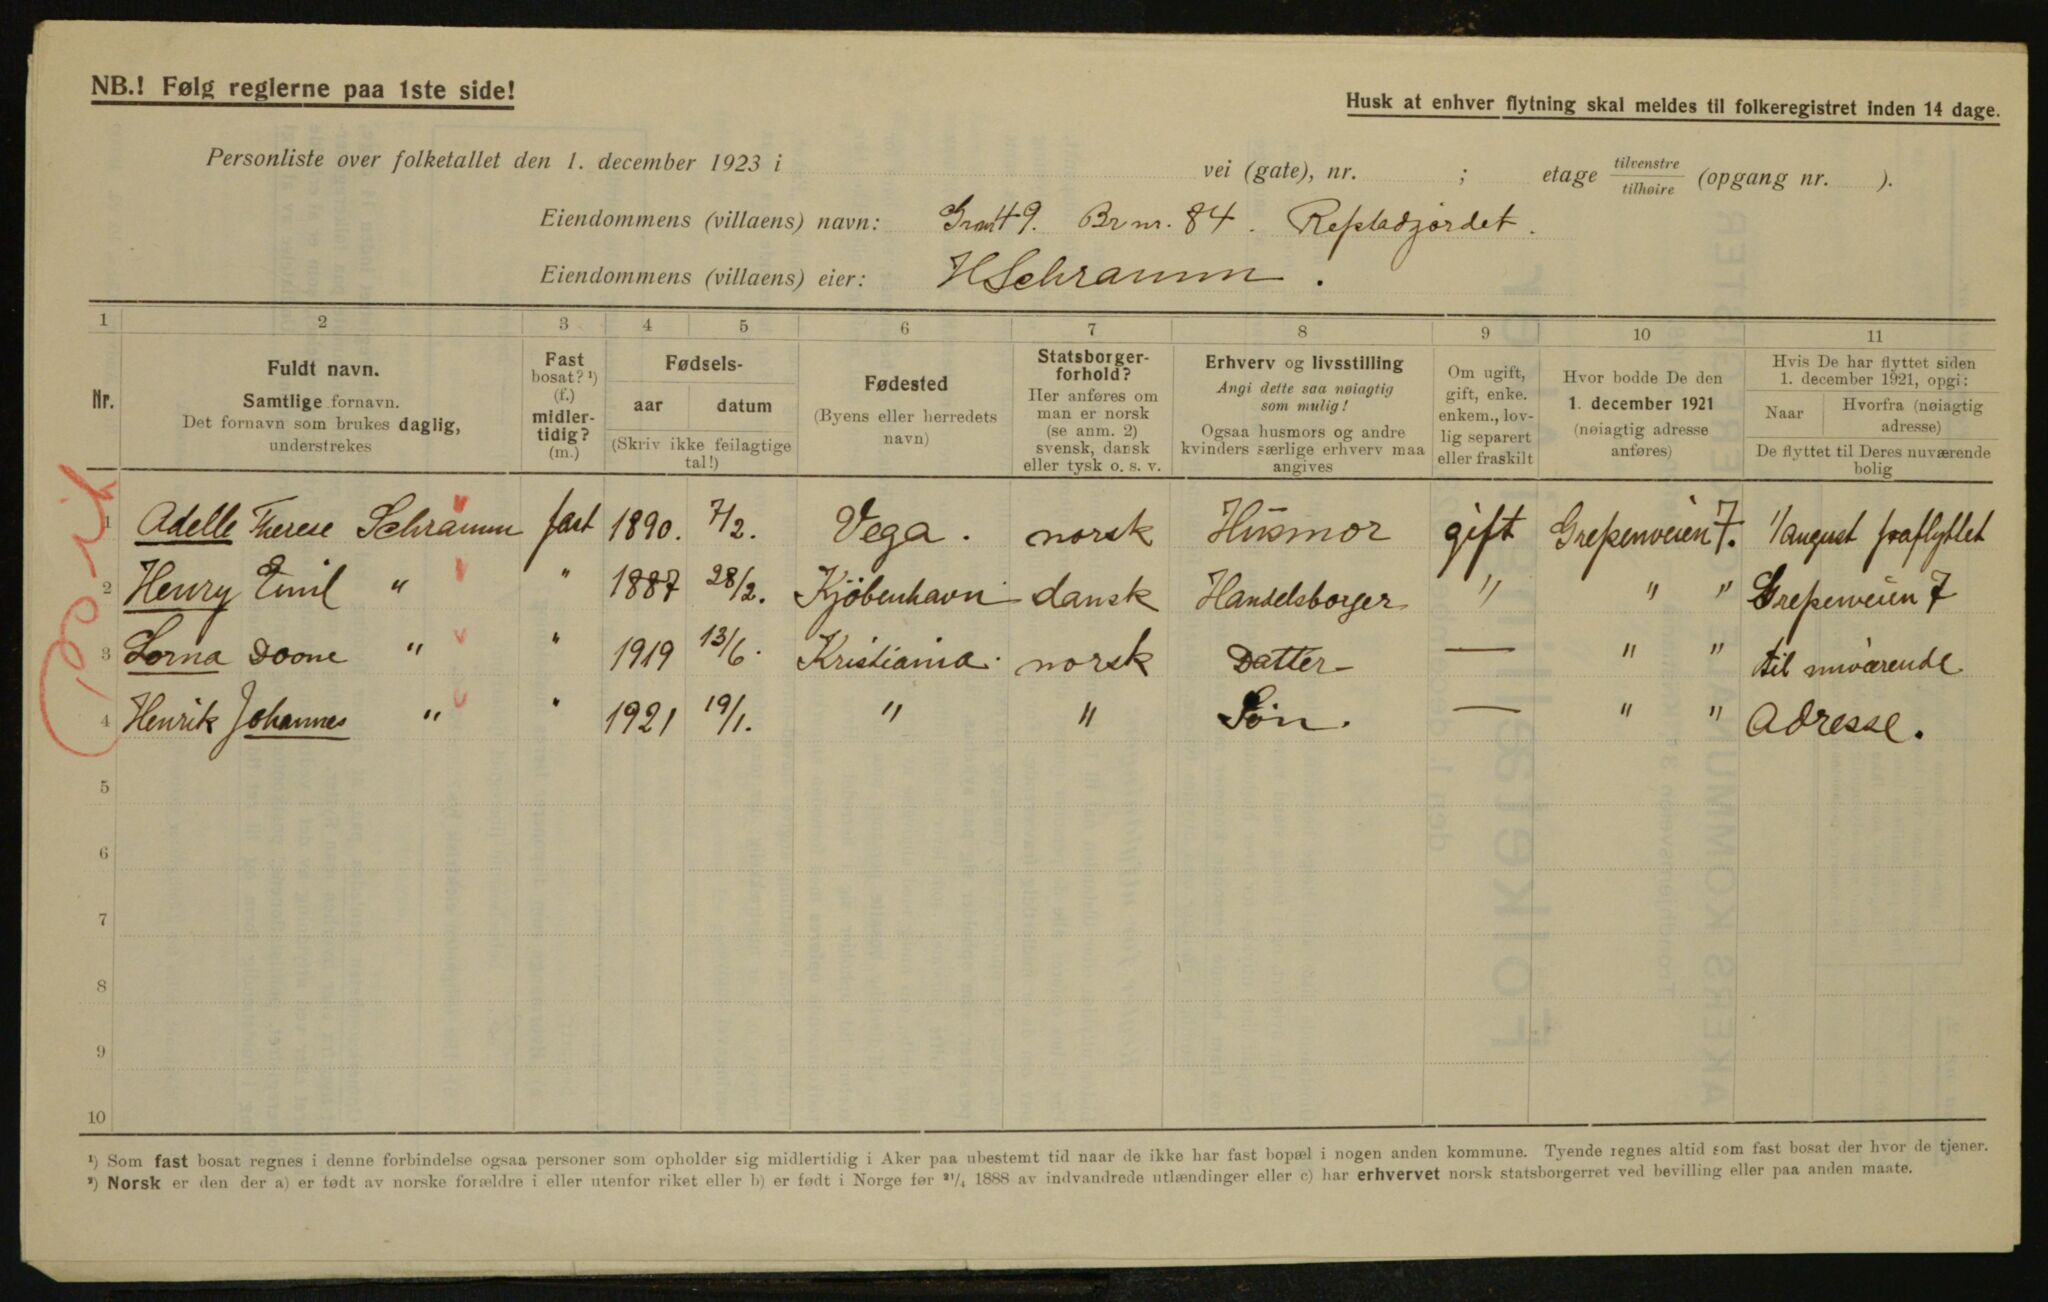 NB.! Følg reglerne paa 1ste side!
Husk at enhver flytning skal meldes til folkeregistret inden 14 dage.
Personliste over folketallet den 1. december 1923 i vei (gate), nr. ; etage tilvenstre/tilhøire (opgang nr. ).
Eiendommens (villaens) navn: 49. Brnr. 84.
Eiendommens (villaens) eier: H Schramm.
1 2 3 4 5 6 7 8 9 10 11
Nr.
Fuldt navn.
Samtlige fornavn.
Det fornavn som brukes daglig,
understrekes
Fast
bosat? ¹)
(f.)
midler-
tidig?
(m.)
Fødsels-
aar datum
(Skriv ikke feilagtige
tal!)
Fødested
(Byens eller herredets
navn)
Statsborger-
forhold?
Her anføres om
man er norsk
(se anm. 2)
svensk, dansk
eller tysk o. s. v.
Erhverv og livsstilling
Angi dette saa nøiagtig
som mulig!
Ogsaa husmors og andre
kvinders særlige erhverv maa
angives
Om ugift,
gift, enke.
enkem., lov-
lig separert
eller fraskilt
Hvor bodde De den
1. december 1921
(nøiagtig adresse
anføres)
Hvis De har flyttet siden
1. december 1921, opgi:
Naar Hvorfra (nøiagtig
adresse)
De flyttet til Deres nuværende
bolig
1 Adelle Therese Schramm fast 1890. 7/2. Vega. norsk Husmor gift Grefsenveien 7. 1/august fraflyttet
2 Henry Emil " " 1887 28/2. Kjöbenhavn dansk Handelsborger " " " Grefsenveien 7
3 Lorna Doone " " 1919 13/6. Kristiania. norsk Datter — " " til nuværende
4 Henrik Johannes " " 1921 19/1. " " Søn. — " " Adresse.
5
6
7
8
9
10
¹) Som fast bosat regnes i denne forbindelse ogsaa personer som opholder sig midlertidig i Aker paa ubestemt tid naar de ikke har fast bopæl i nogen anden kommune. Tyende regnes altid som fast bosat der hvor de tjener.
²) Norsk er den der a) er født av norske forældre i eller utenfor riket eller b) er født i Norge før ²¹/₄ 1888 av indvandrede utlændinger eller c) har erhvervet norsk statsborgerret ved bevilling eller paa anden maate.